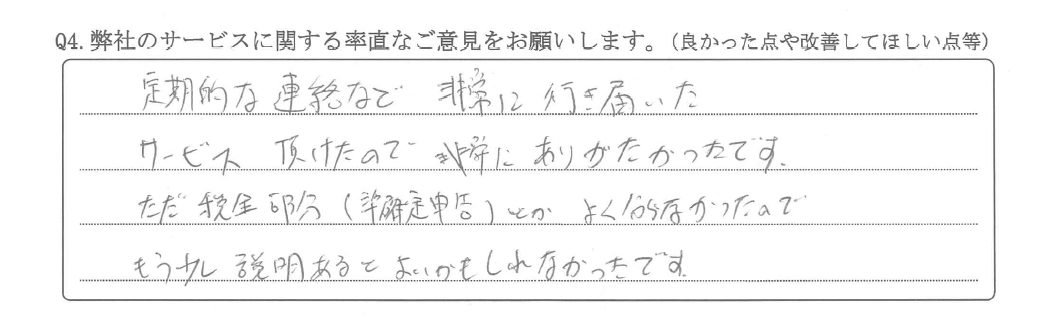 Q4. 弊社のサービスに関する率直なご意見をお願いします。(良かった点や改善してほしい点等)
定期的な連絡など 非常に 行き届いた
サービス 頂けたので 非常に ありがたかったです.
ただ 税金部分(確定申告)とか よく分らなかったので
もう少し 説明あると よいかもしれなかったです